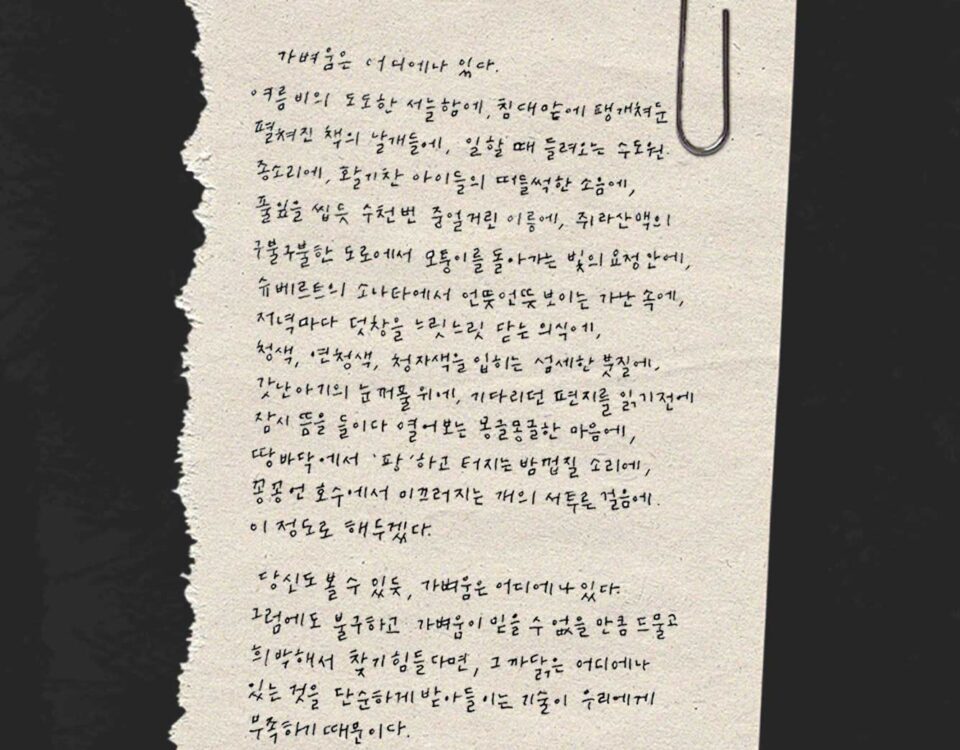 가벼움은 어디에나 있다.
여름비의 도도한 서늘함에, 침대맡에 팽개쳐둔
펼쳐진 책의 날개들에, 일할 때 들려오는 수도원
종소리에, 활기찬 아이들의 떠들썩한 소음에,
풀잎을 씹듯 수천번 중얼거린 이름에, 쥐라산맥의
구불구불한 도로에서 모퉁이를 돌아가는 빛의 요정 안에,
슈베르트의 소나타에서 언뜻언뜻 보이는 가난 속에,
저녁마다 덧창을 느릿느릿 닫는 의식에,
청색, 연청색, 청자색을 입히는 섬세한 붓질에,
갓난아기의 눈꺼풀 위에, 기다리던 편지를 읽기전에
잠시 뜸을 들이다 열어보는 몽글몽글한 마음에,
땅바닥에서 '팡'하고 터지는 밤껍질 소리에,
꽁꽁 언 호수에서 미끄러지는 개의 서투른 걸음에.
이 정도로 해두겠다.
당신도 볼 수 있듯, 가벼움은 어디에나 있다.
그럼에도 불구하고 가벼움이 믿을 수 없을 만큼 드물고
희박해서 찾기 힘들다면, 그 까닭은 어디에나
있는 것을 단순하게 받아들이는 기술이 우리에게
부족하기 때문이다.